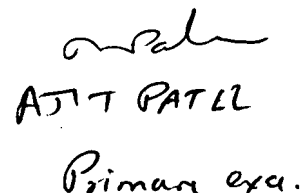 AJIT PATEL
Primary exa.